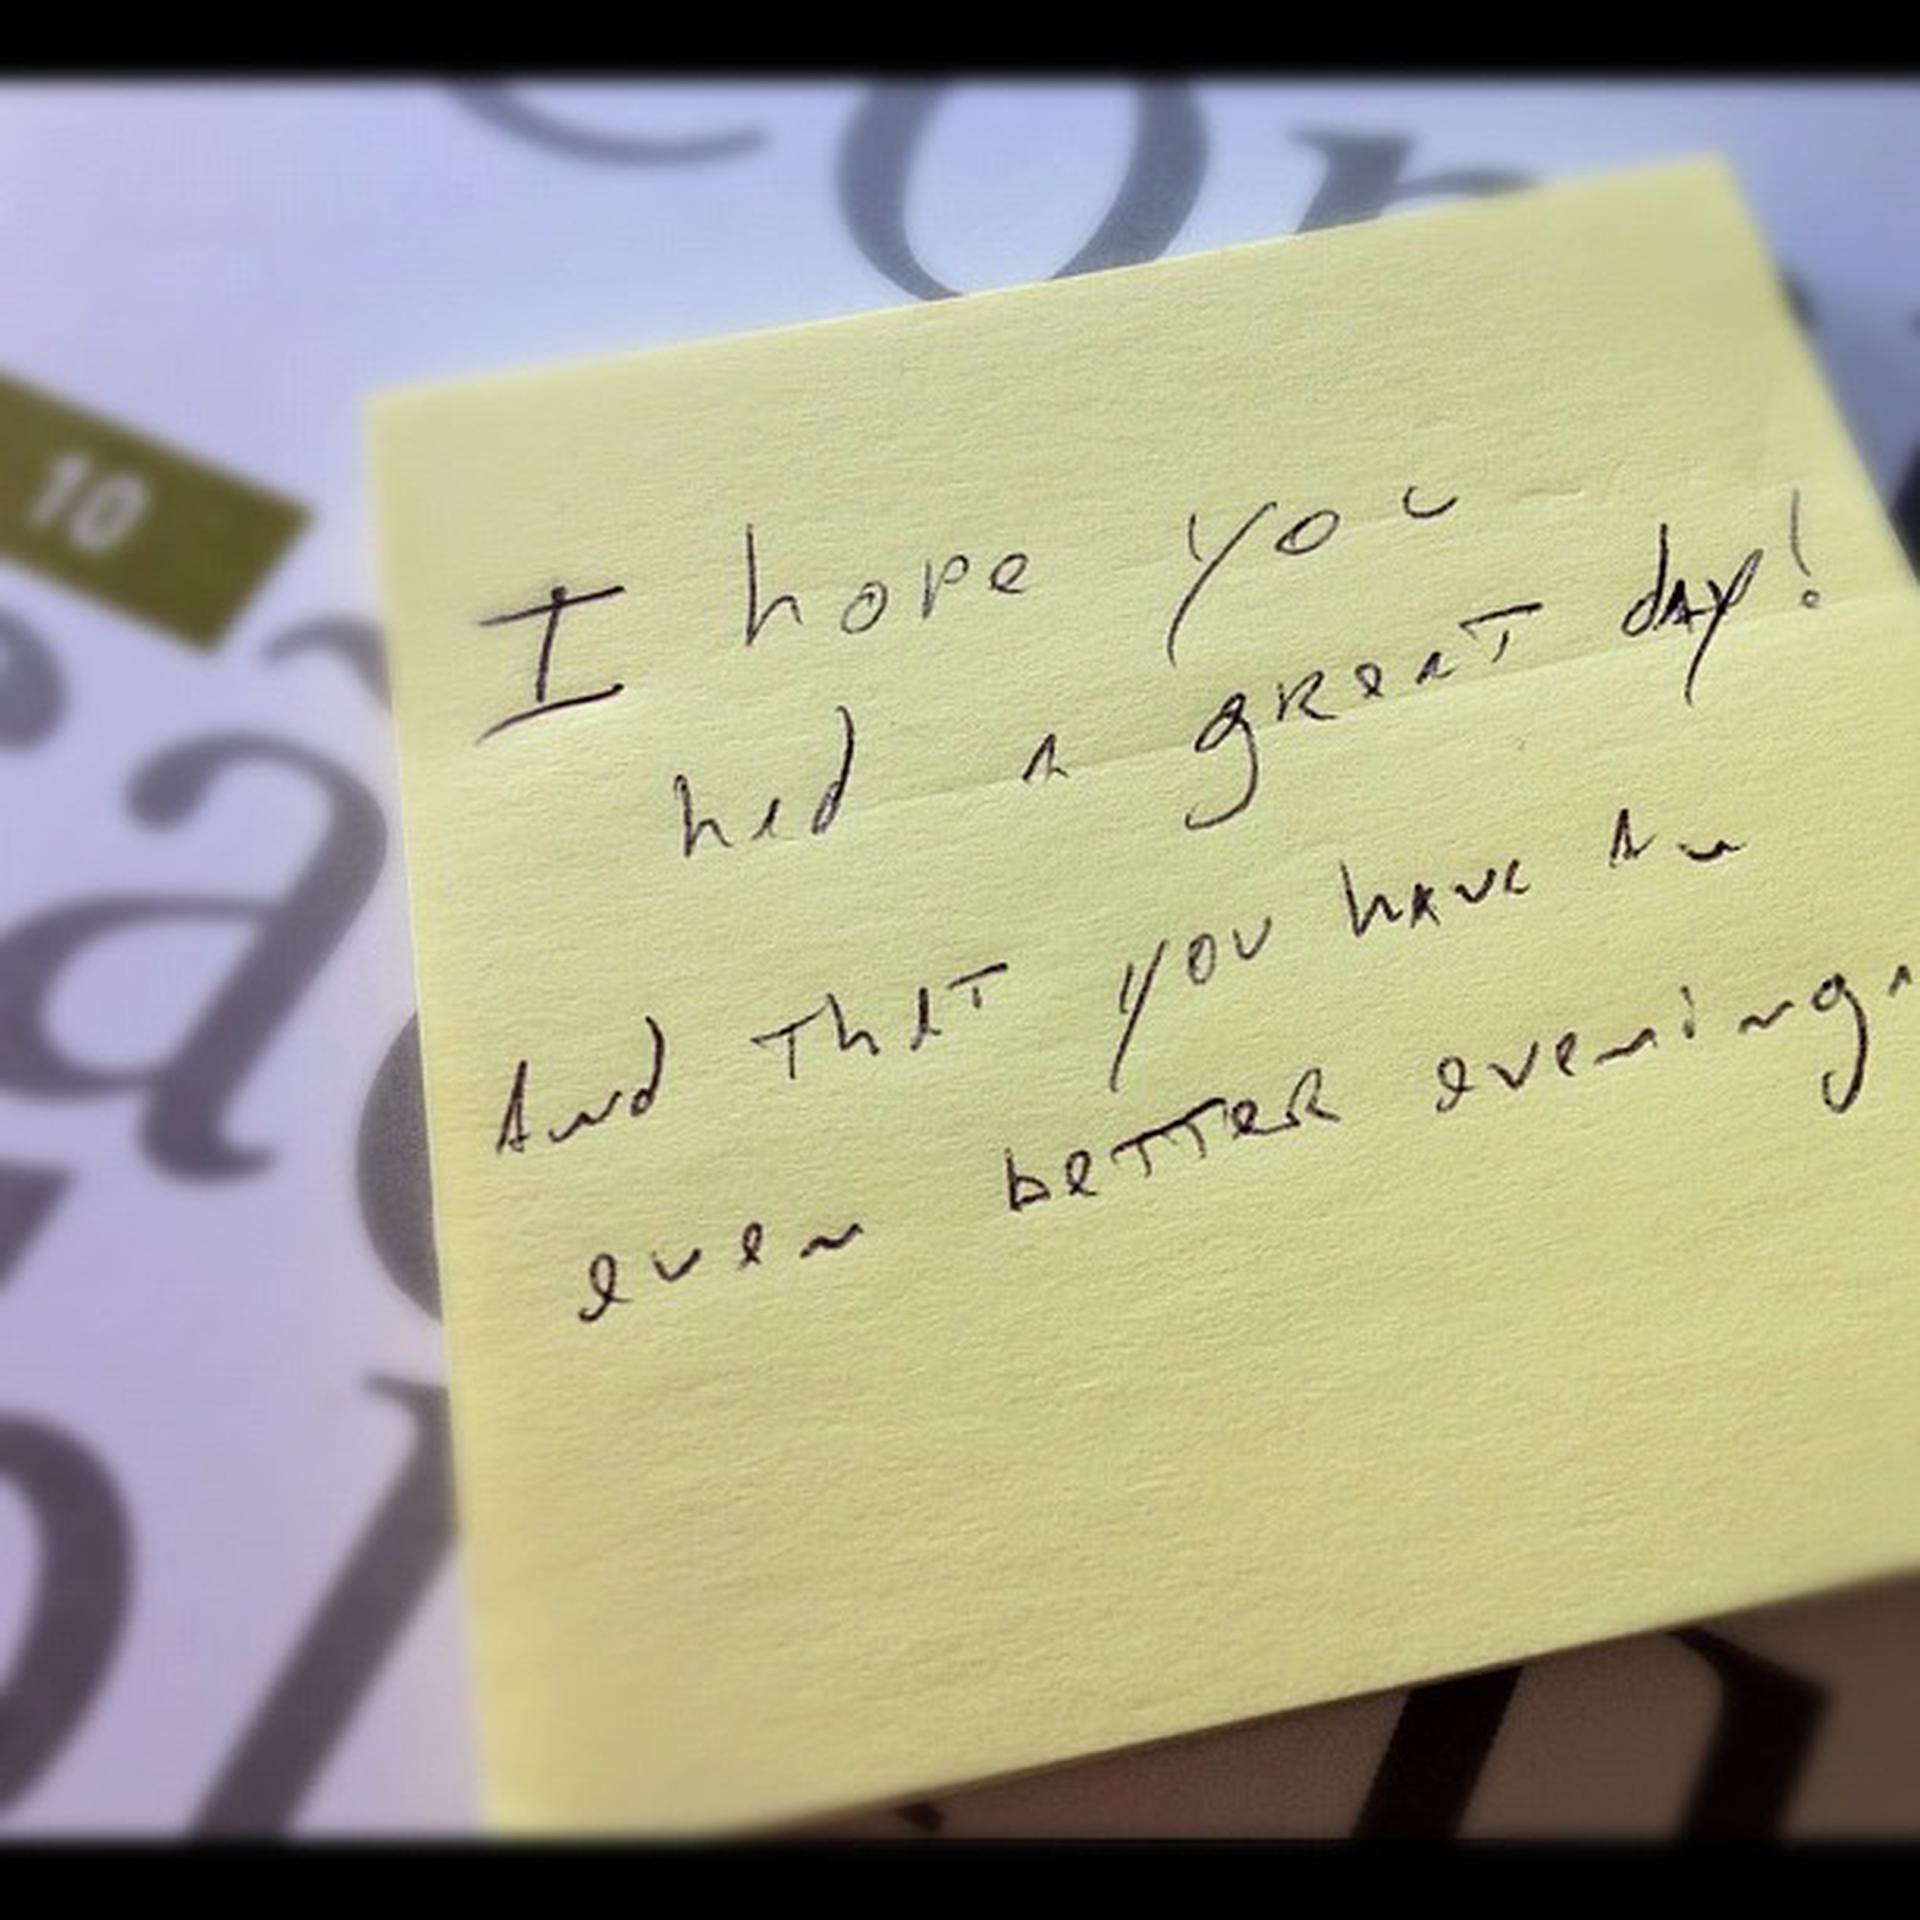 10
I hope you
had a great day!
And that you have an
even better evening.